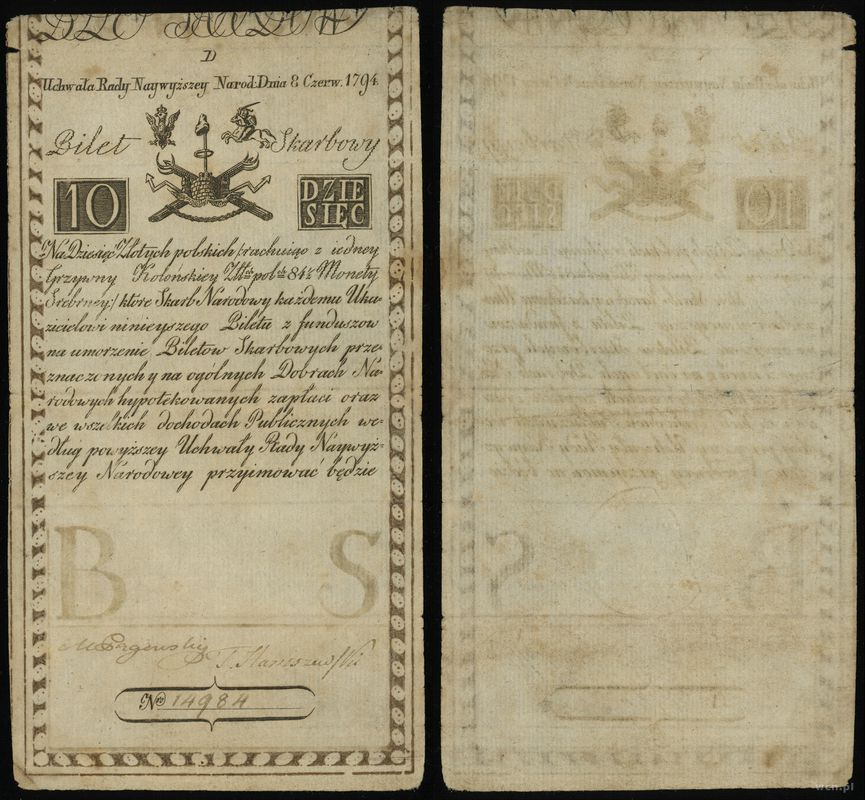 D
Uchwała Rady Naywyższey Narod: Dnia 8 Czerw. 1794.
Bilet Skarbowy
10 DZIE
SIĘC
Na Dziesięć Złotych polskich /:rachuiąc z iedney
Grzywny Kolońskiey Złt: pol: 84½ Monety
Srebrney:/ które Skarb Narodowy każdemu Uka-
zicielowi ninieyszego Biletu z funduszow
na umorzenie Biletow Skarbowych prze-
znaczonych y na ogólnych Dobrach Na-
rodowych hypotekowanych zapłaci oraz
we wszelkich dochodach Publicznych we-
dług powyższey Uchwały Rady Naywyż-
szey Narodowey przyimować będzie
B S
T. Staniszewski
Nro 14984
wcn.pl